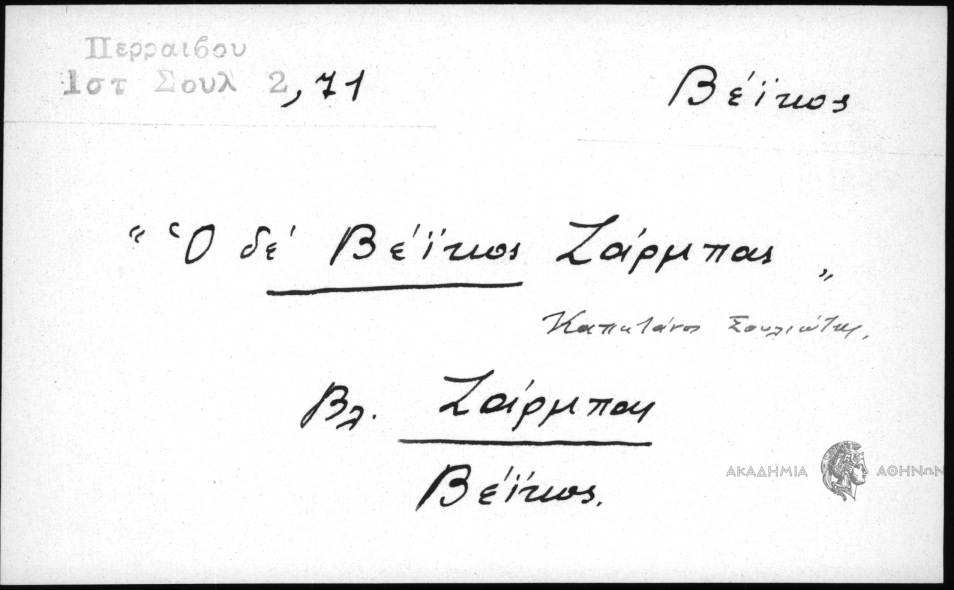 Περραιβου
Ιστ Σουλ 2,71
Βέϊκος
“ Ὁ δέ Βέϊκος Ζάρμπας „
Καπετάνος Σουλιώτης.
Βλ. Ζάρμπας
Βέϊκος.
ΑΚΑΔΗΜΙΑ ΑΘΗΝΩΝ